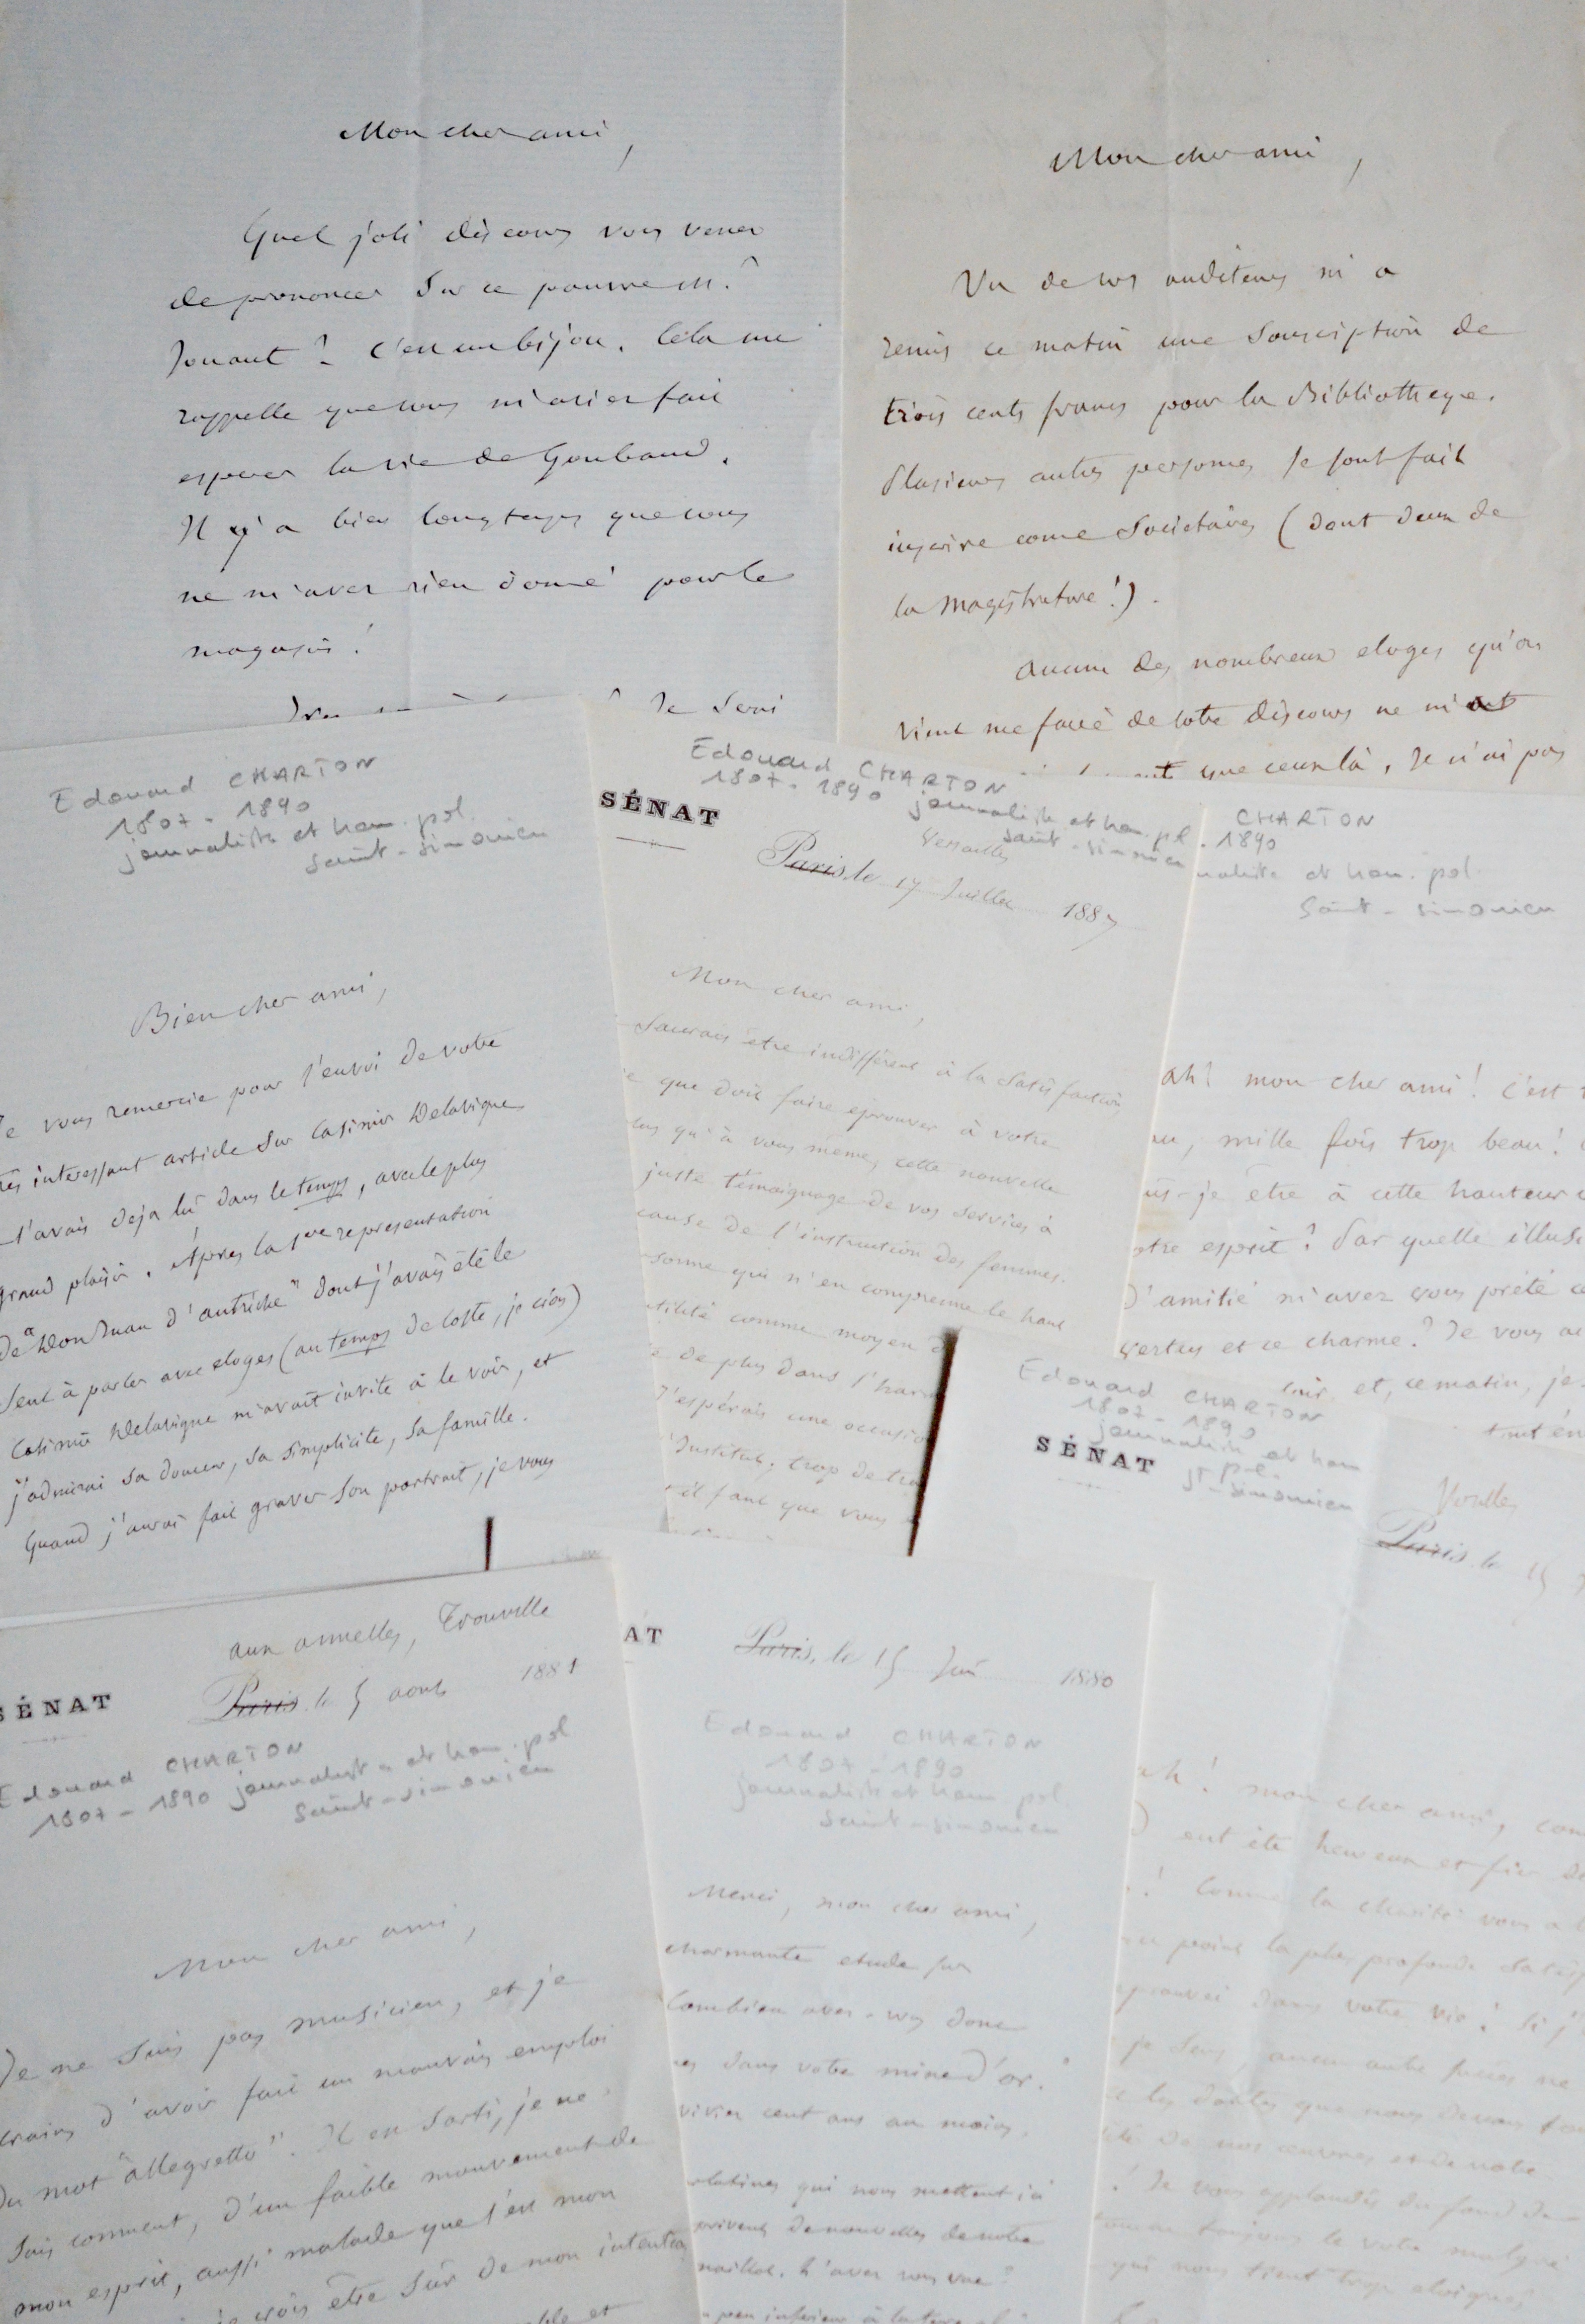 Mon cher ami,
Quel joli discours vous venez
de prononcer Sur ce pauvre M.
Jouant ! C'est un bijou. Cela me
rappelle que vous m'aviez fait
esperer la vie de Goubaud.
Il y a bien longtemps que vous
ne m'avez rien donné pour le
magasin !
Je Serai
Mon cher ami,
Un de vos auditeurs m'a
remis ce matin une Souscription de
trois cents francs pour la Bibliotheque.
Plusieurs autres personnes se sont fait
inscrire come Societaires ( dont deux de
la Magistrature ! ) .
Aucun des nombreux eloges qu'on
vient me faire de votre discours ne m'ont
que ceux là, Je n'ai pas
Edouard CHARTON
1807 - 1890
journaliste et hom. pol.
saint-simonien
Bien cher ami,
Je vous remercie pour l'envoi de votre
très interessant article Sur Casimir Delavigne
l'avais deja lu dans le temps, avec le plus
grand plaisir. Après la 1ere representation
de "Don Juan d'autriche" dont j'avais été le
Seul à parler avec eloges (au temps de Coste, je crois)
Casimir Delavigne m'avait invité à le voir, et
j'admirai Sa douceur, Sa Simplicité, Sa famille.
Quand j'aurai fait graver Son portrait, je vous
Edouard CHARTON
1807 - 1890 journaliste et hom. pol.
saint-simonien
SÉNAT
Versailles
Paris, le 17 Juillet 188
Mon cher ami,
Saurais être indifférent à la Satisfaction
que doit faire eprouver à votre
qu'à vous même, cette nouvelle
juste témoignage de vos Services à
cause de l'instruction des femmes.
sonne qui n'en comprenne le haut
utilité comme moyen d
de plus dans l'har
J'espérais une occasion
Institut. trop de
il faut que vous
CHARTON
1890
naliste et hom. pol.
Saint-simonien
Ah ! mon cher ami ! C'est
mille fois trop beau !
je être à cette hauteur
otre esprit ? Par quelle illus
D'amitié m'avez vous prêté ce
vertus et ce charme ? Je vous
et, ce matin, je
Edouard CHARTON
1807 - 1890
journaliste et hom
pol.
St-simonien
SÉNAT
Paris, le 15
aux annelles, Trouville
SÉNAT
Paris, le 5 aout 1881
Edouard CHARTON
1807 - 1890 journaliste et hom. pol
saint-simonien
Mon cher ami,
Je ne Suis pas musicien, et je
crains d'avoir fait un mauvais emploi
du mot "allegretto". Il en Sorti, je ne
Sais comment, d'un faible mouvement de
mon esprit, aussi malade que l'est mon
crois être Sûr de mon intention
et
AT
Paris, le 15 Juin 1880
Edouard CHARTON
1807 - 1890
journaliste et hom pol.
saint-simonien
Merci, mon cher ami,
charmante etude sur
Combien avez-vous donc
dans votre mine d'or.
cent ans au moins,
qui nous mettent ici
privent de nouvelles de notre
L'avez vous vue ?
un peu inferieur à
ah ! mon cher ami,
eut été heureux et fier de
! Comme la charité vous a
la plus profonde Satis
dans votre vie ! Si j'
je Sens, aucun autre succès ne
les doutes que nous devons
de nos oeuvres et de notre
! Je vous applaudis du fond de
toujours le votre malgré
qui nous tient trop eloignés